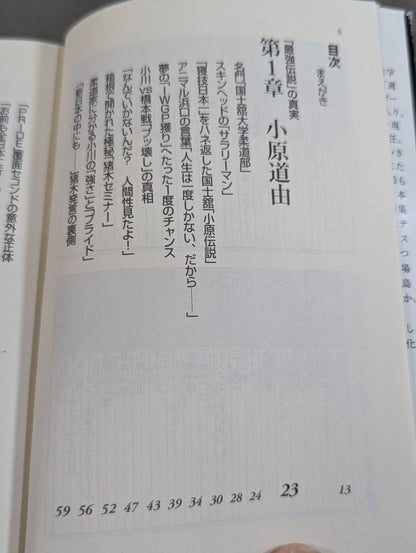 6
目次
まえがき 13
「最強伝説」の真実
第1章 小原道由 23
名門「国士舘大学柔道部」 24
スキンヘッドの「サラリーマン」 28
「寝技日本一」をハネ返した国士舘「小原伝説」 30
アニマル浜口の言葉「人生は一度しかない、だから——」 34
夢の「IWGP獲り」へたった1度のチャンス 39
小川vs橋本戦「ブッ壊し」の真相 43
「なんでいかないんだ? 人間性見たよ!」 47
箱根で開かれた極秘「猪木セミナー」 52
柔道家に分かる小川の「強さ」と「プライド」 56
「新日本の中にも——」猪木発言の裏側 59
「PRIDE」覆面セコンドの意外な正体